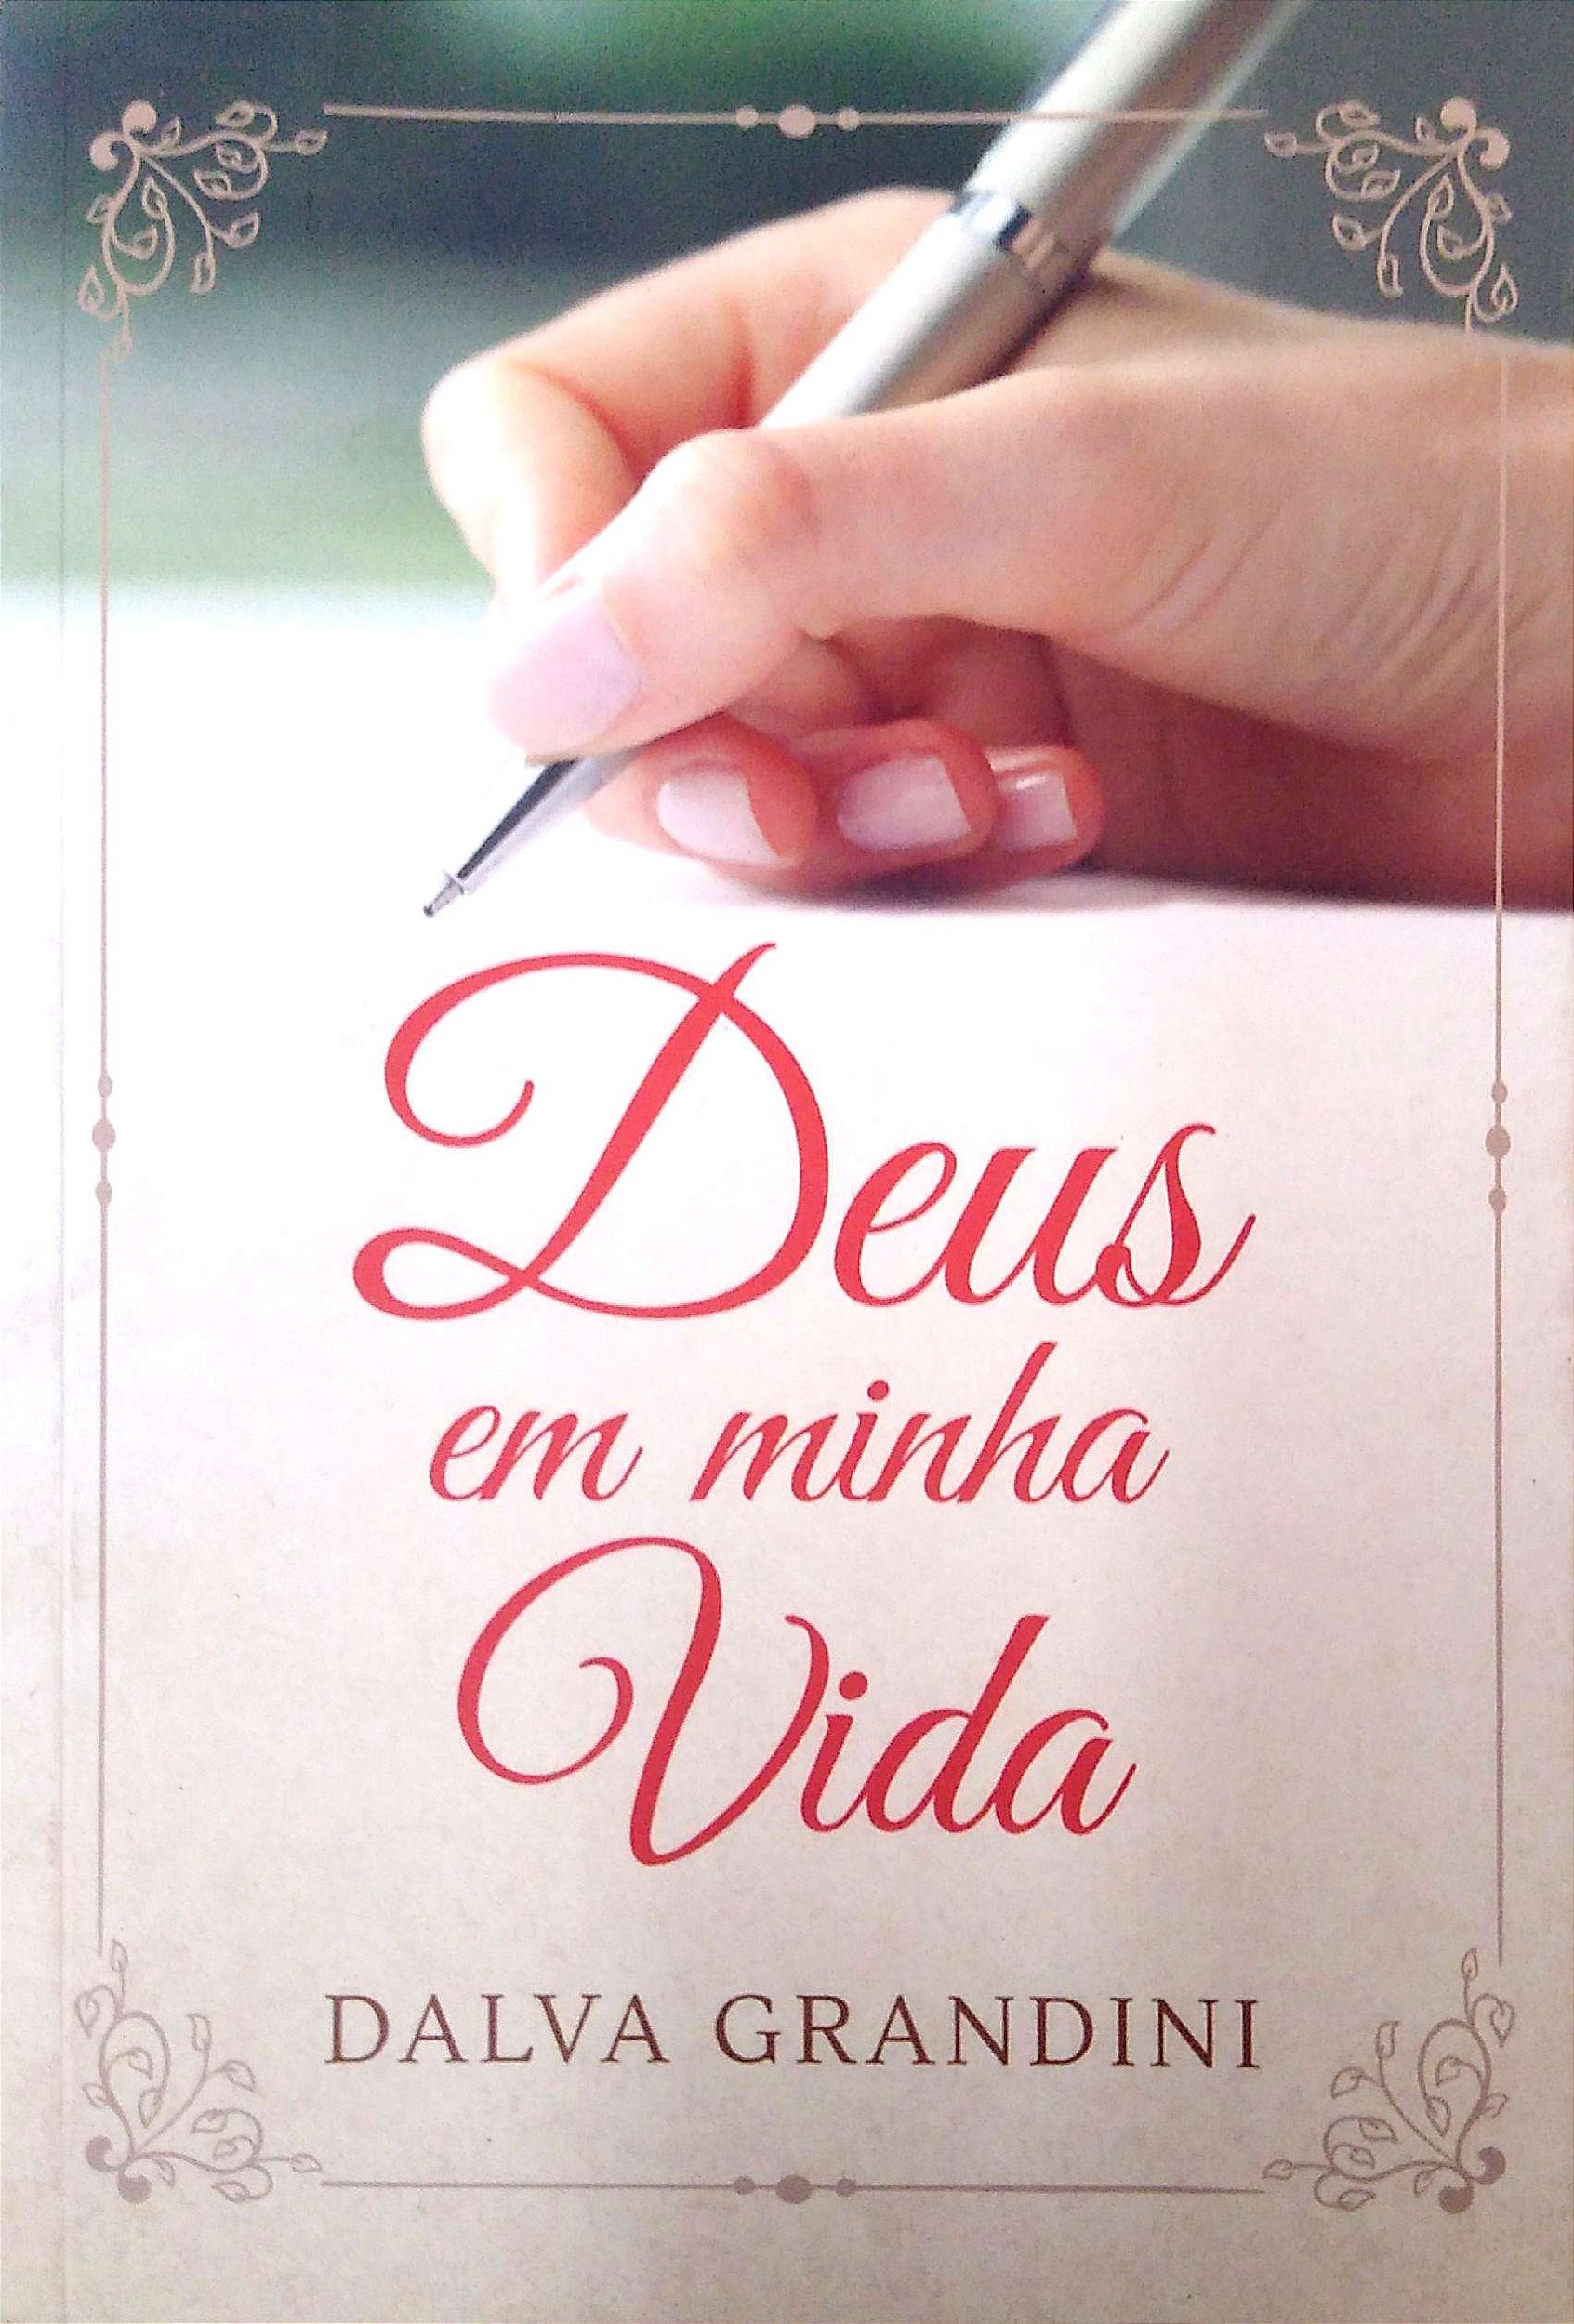 Deus
em minha
Vida
DALVA GRANDINI